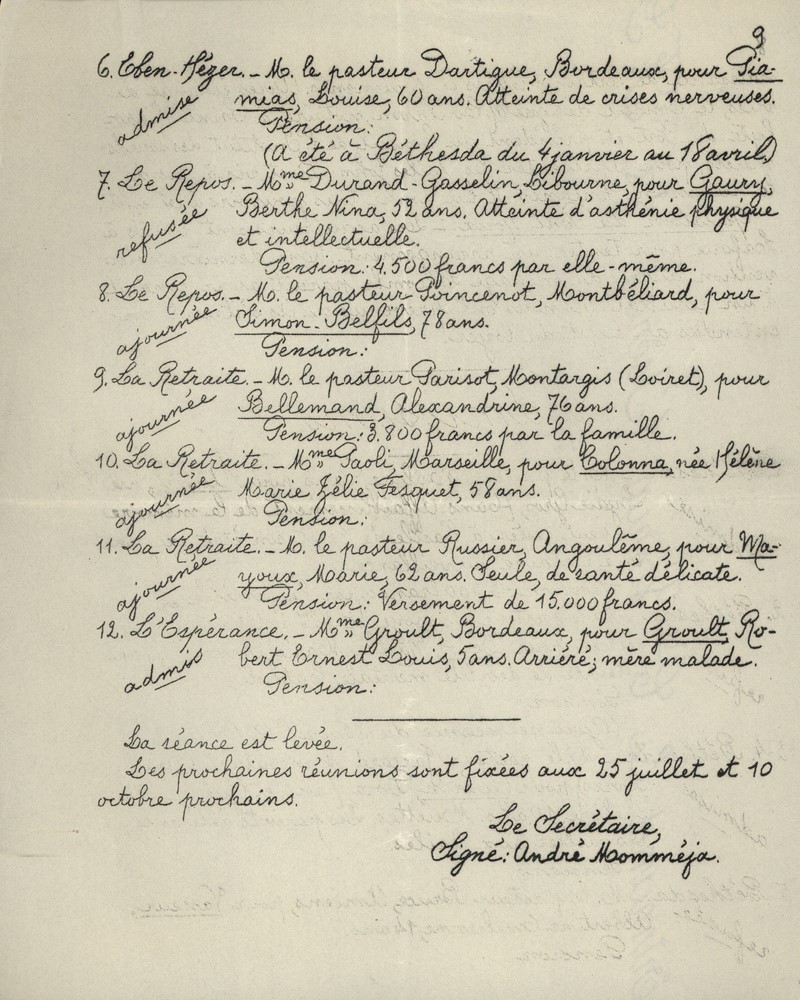 9
6. Eben-Hézer. - M. le pasteur Dartigue, Bordeaux, pour Pia-
mias, Louise, 60 ans. Atteinte de crises nerveuses.
admise
Pension:
(A été à Béthesda du 4 janvier au 18 avril)
7. Le Repos. - Mme Durand-Gasselin, Libourne, pour Gaury,
Berthe Nina, 52 ans. Atteinte d'asthénie physique
refusée
et intellectuelle.
Pension: 4.500 francs par elle-même.
8. Le Repos. - M. le pasteur Poincenot, Montbéliard, pour
Simon-Belfils, 78 ans.
ajournée
Pension:
9. La Retraite. - M. le pasteur Parisot, Montargis (Loiret), pour
Bellemand, Alexandrine, 76 ans.
ajournée
Pension: 3.800 francs par la famille.
10. La Retraite. - Mme Paoli, Marseille, pour Colonna, née Hélène
Marie Zélie Fesquet, 58 ans.
ajournée
Pension:
11. La Retraite. - M. le pasteur Russier, Angoulême, pour Ma-
youx, Marie, 62 ans. Seule, de santé délicate.
ajournée
Pension: Versement de 15.000 francs.
12. L'Espérance. - Mme Groult, Bordeaux, pour Groult, Ro-
bert Ernest Louis, 5 ans. Arriéré; mère malade.
admis
Pension:
La séance est levée.
Les prochaines réunions sont fixées aux 25 juillet et 10
octobre prochains.
Le Secrétaire,
Signé: André Momméja.